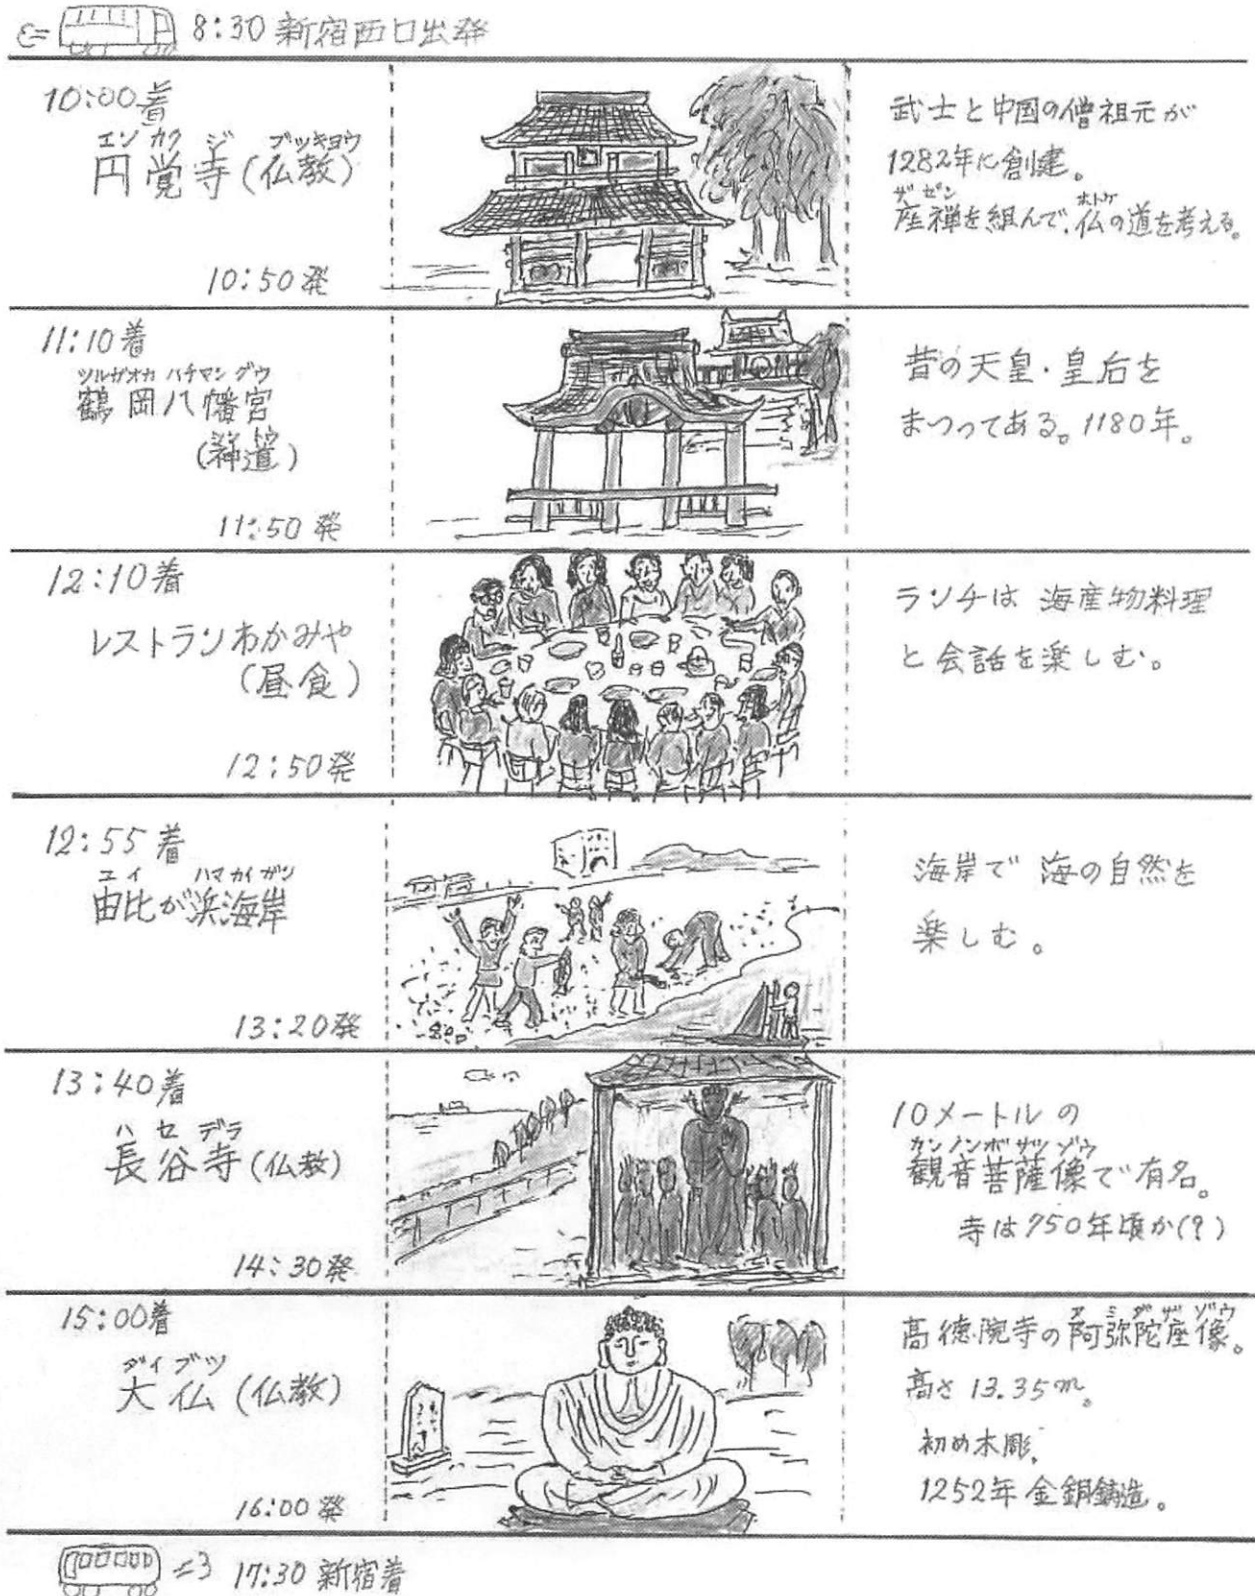 8:30 新宿西口出発
10:00着
エンカクジ ブッキョウ
円覚寺(仏教)
10:50発
武士と中国の僧祖元が
1282年に創建。
ザゼン ホトケ
座禅を組んで、仏の道を考える。
11:10着
ツルガオカ ハチマングウ
鶴岡八幡宮
(神道)
11:50発
昔の天皇・皇后を
まつってある。1180年。
12:10着
レストランわかみや
(昼食)
12:50発
ランチは 海産物料理
と会話を楽しむ。
12:55着
ユイ ハマカイガン
由比が浜海岸
13:20発
海岸で 海の自然を
楽しむ。
13:40着
ハセデラ
長谷寺(仏教)
14:30発
10メートルの
カンノンボサツゾウ
観音菩薩像で有名。
寺は750年頃か(?)
15:00着
ダイブツ
大仏(仏教)
16:00発
高徳院寺の阿弥陀座像。
高さ 13.35m。
初め木彫、
1252年金銅鋳造。
17:30 新宿着